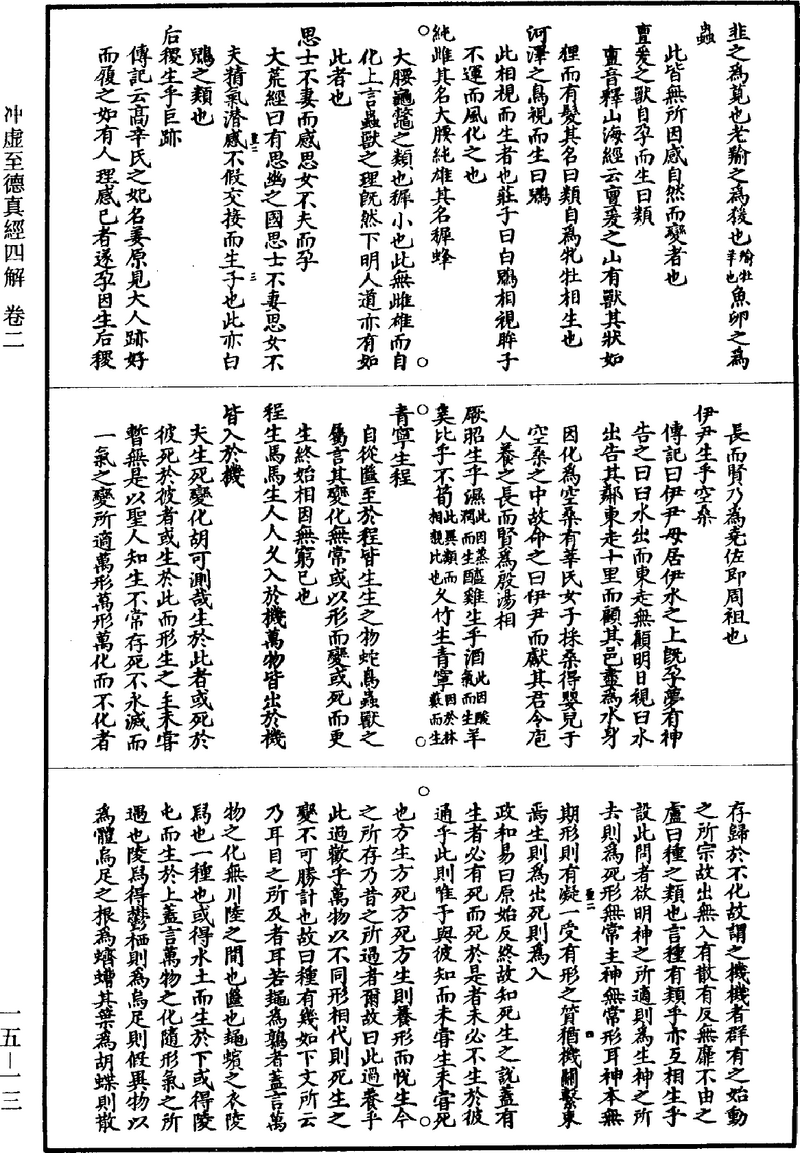 韭之為莧也老羭之為猨也羭牡羊也魚卵之為
蟲
此皆無所因感自然而變者也
亶爰之獸自孕而生曰類
亶音釋山海經云亶爰之山有獸其狀如
狸而有髮其名曰類自為牝牡相生也
河澤之鳥視而生曰鶂
此相視而生者也莊子曰白鶂相視眸子
不運而風化之也
純雌其名大腰純雄其名穉蜂
大腰龜鼈之類也穉小也此無雌雄而自
化上言蟲獸之理既然下明人道亦有如
此者也
思士不妻而感思女不夫而孕
大荒經曰有思幽之國思士不妻思女不
夫精氣潛感不假交接而生子也此亦白
鶂之類也
后稷生乎巨跡
傳記云高辛氏之妃名姜原見大人跡好
而履之如有人理感己者遂孕因生后稷
長而賢乃為堯佐即周祖也
伊尹生乎空桑
傳記曰伊尹母居伊水之上既孕夢有神
告之曰臼水出而東走無顧明日視臼水
出告其鄰東走十里而顧其邑盡為水身
因化為空桑有莘氏女子採桑得嬰兒于
空桑之中故命之曰伊尹而獻其君令庖
人養之長而賢為殷湯相
厥昭生乎濕此因蒸潤而生醯雞生乎酒此因酸氣而生羊
奚比乎不筍此異類而相親比也久竹生青寧因於林藪而生
青寧生程
自從𧔥至於程皆生生之物蛇鳥蟲獸之
屬言其變化無常或以形而變或死而更
生終始相因無窮已也
程生馬馬生人人久入於機萬物皆出於機
皆入於機
夫生死變化胡可測哉生於此者或死於
彼死於彼者或生於此而形生之主未嘗
暫無是以聖人知生不常存死不永滅而
一氣之變所適萬形萬形萬化而不化者
存歸於不化故謂之機機者群有之始動
之所宗故出無入有散有反無靡不由之
盧曰種之類也言種有類乎亦互相生乎
設此問者欲明神之所適則為生神之所
去則為死形無常主神無常形耳神本無
期形則有凝一受有形之質猶機關繫束
焉生則為出死則為入
政和易曰原始反終故知死生之說蓋有
生者必有死而死於是者未必不生於彼
通乎此則唯予與彼知而未嘗生未嘗死
也方生方死方死方生則養形而悅生今
之所存乃昔之所過者爾故曰此過養乎
此過歡乎萬物以不同形相代則死生之
變不可勝計也故曰種有幾如下文所云
乃耳目之所及者耳若䵷為鶉者蓋言萬
物之化無川陸之間也𧔥也䵷蠙之衣陵
舄也一種也或得水土而生於下或得陵
屯而生於上蓋言萬物之化隨形氣之所
遇也陵舄得鬱栖則為烏足則假異物以
為體烏足之根為蠐螬其葉為胡蝶則散
冲虛至德真經四解 卷二
一五—一三